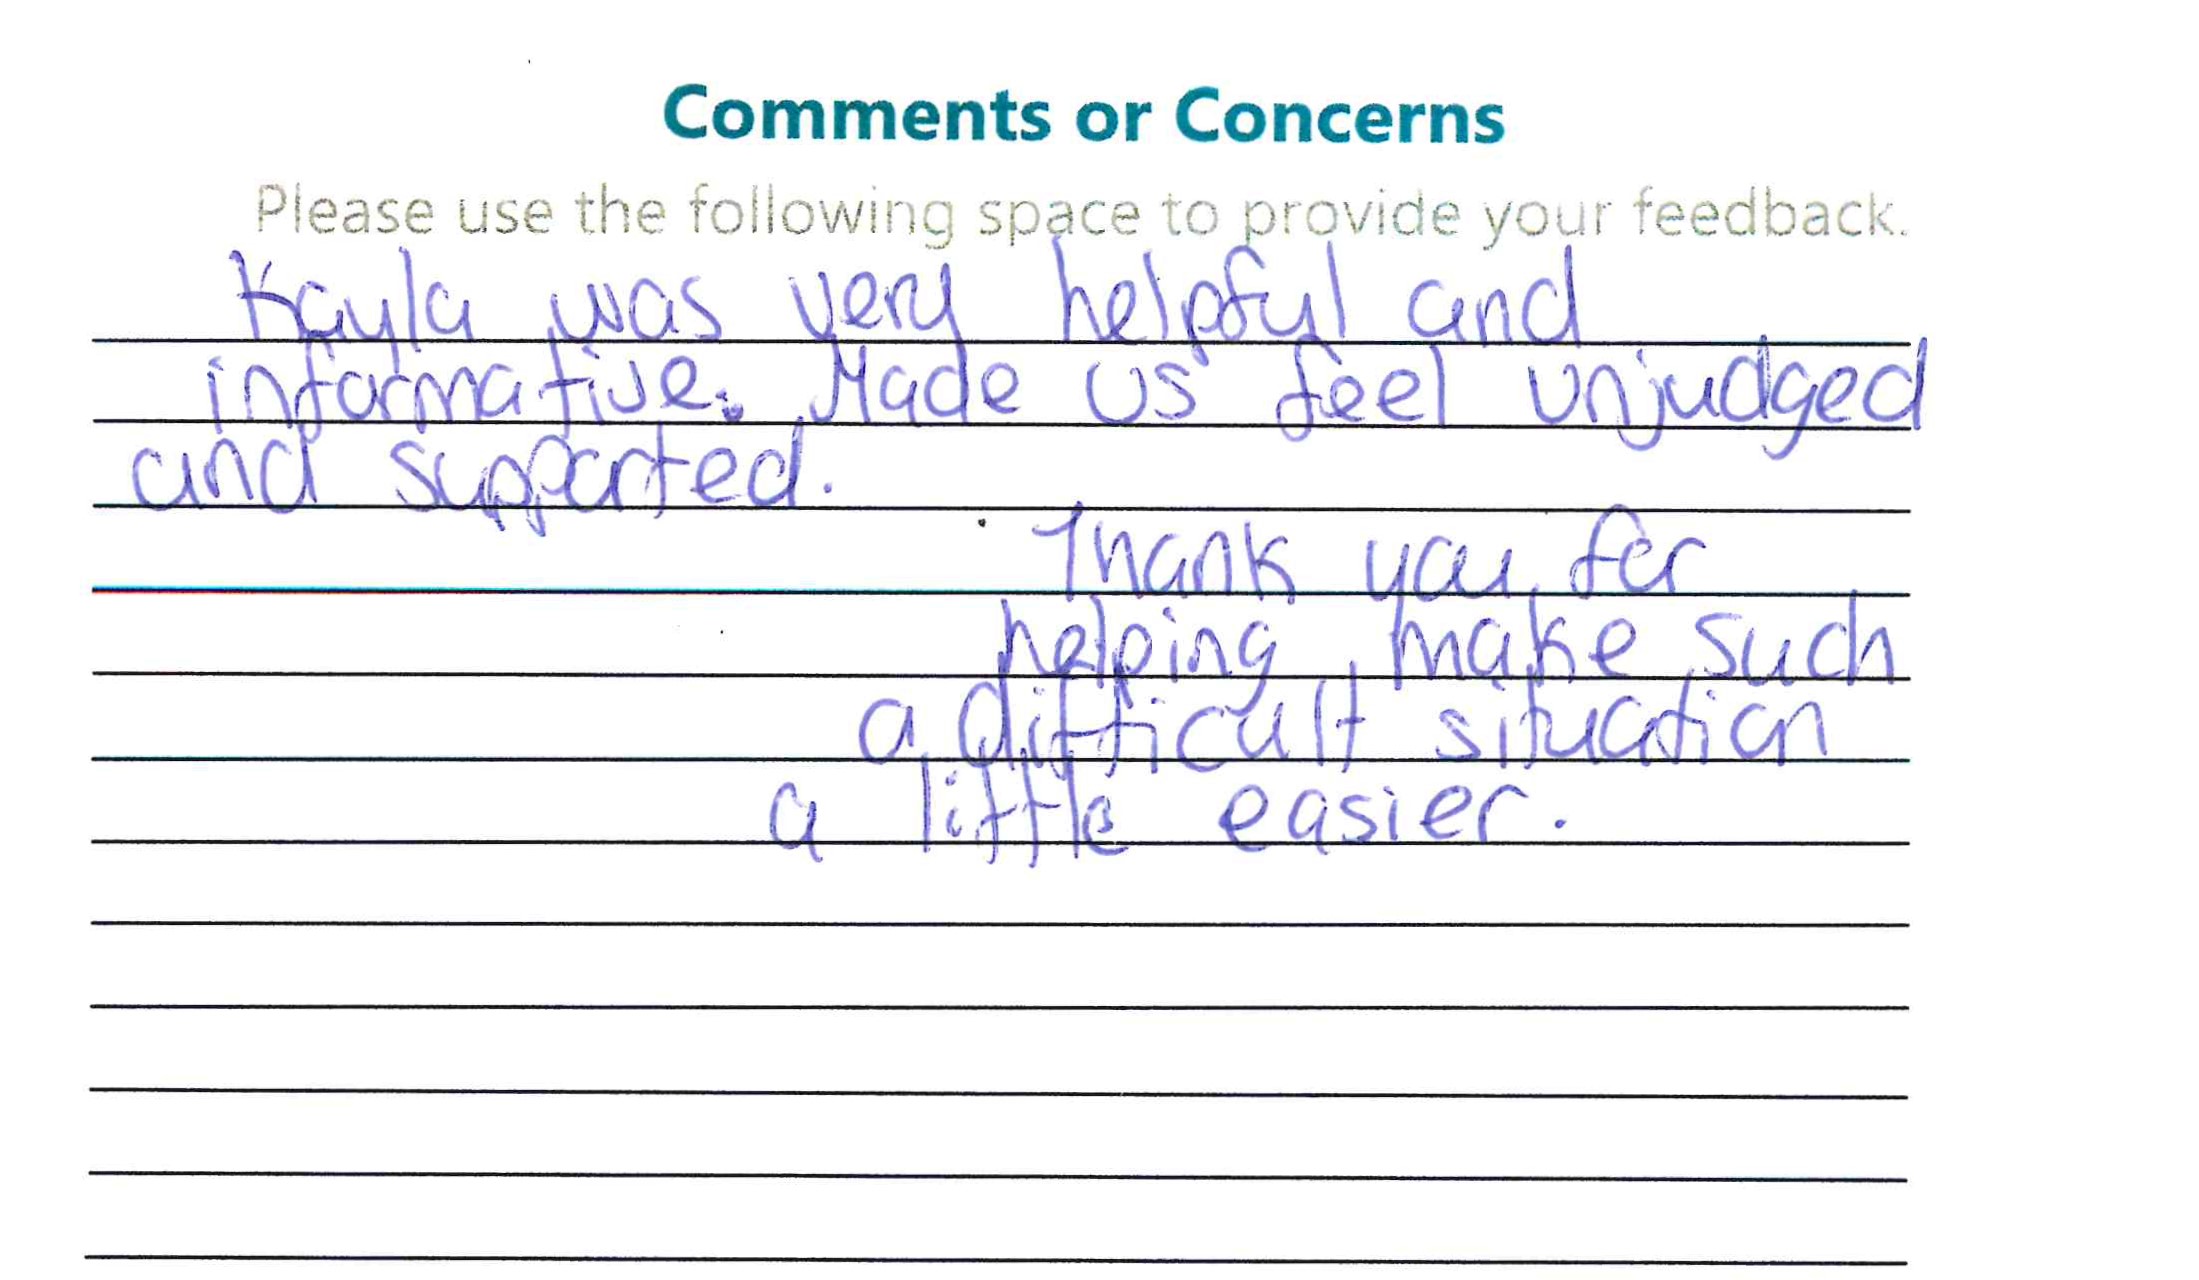 Comments or Concerns
Please use the following space to provide your feedback.
Kayla was very helpful and
informative. Made us feel unjudged
and supported.
Thank you for
helping make such
a difficult situation
a little easier.